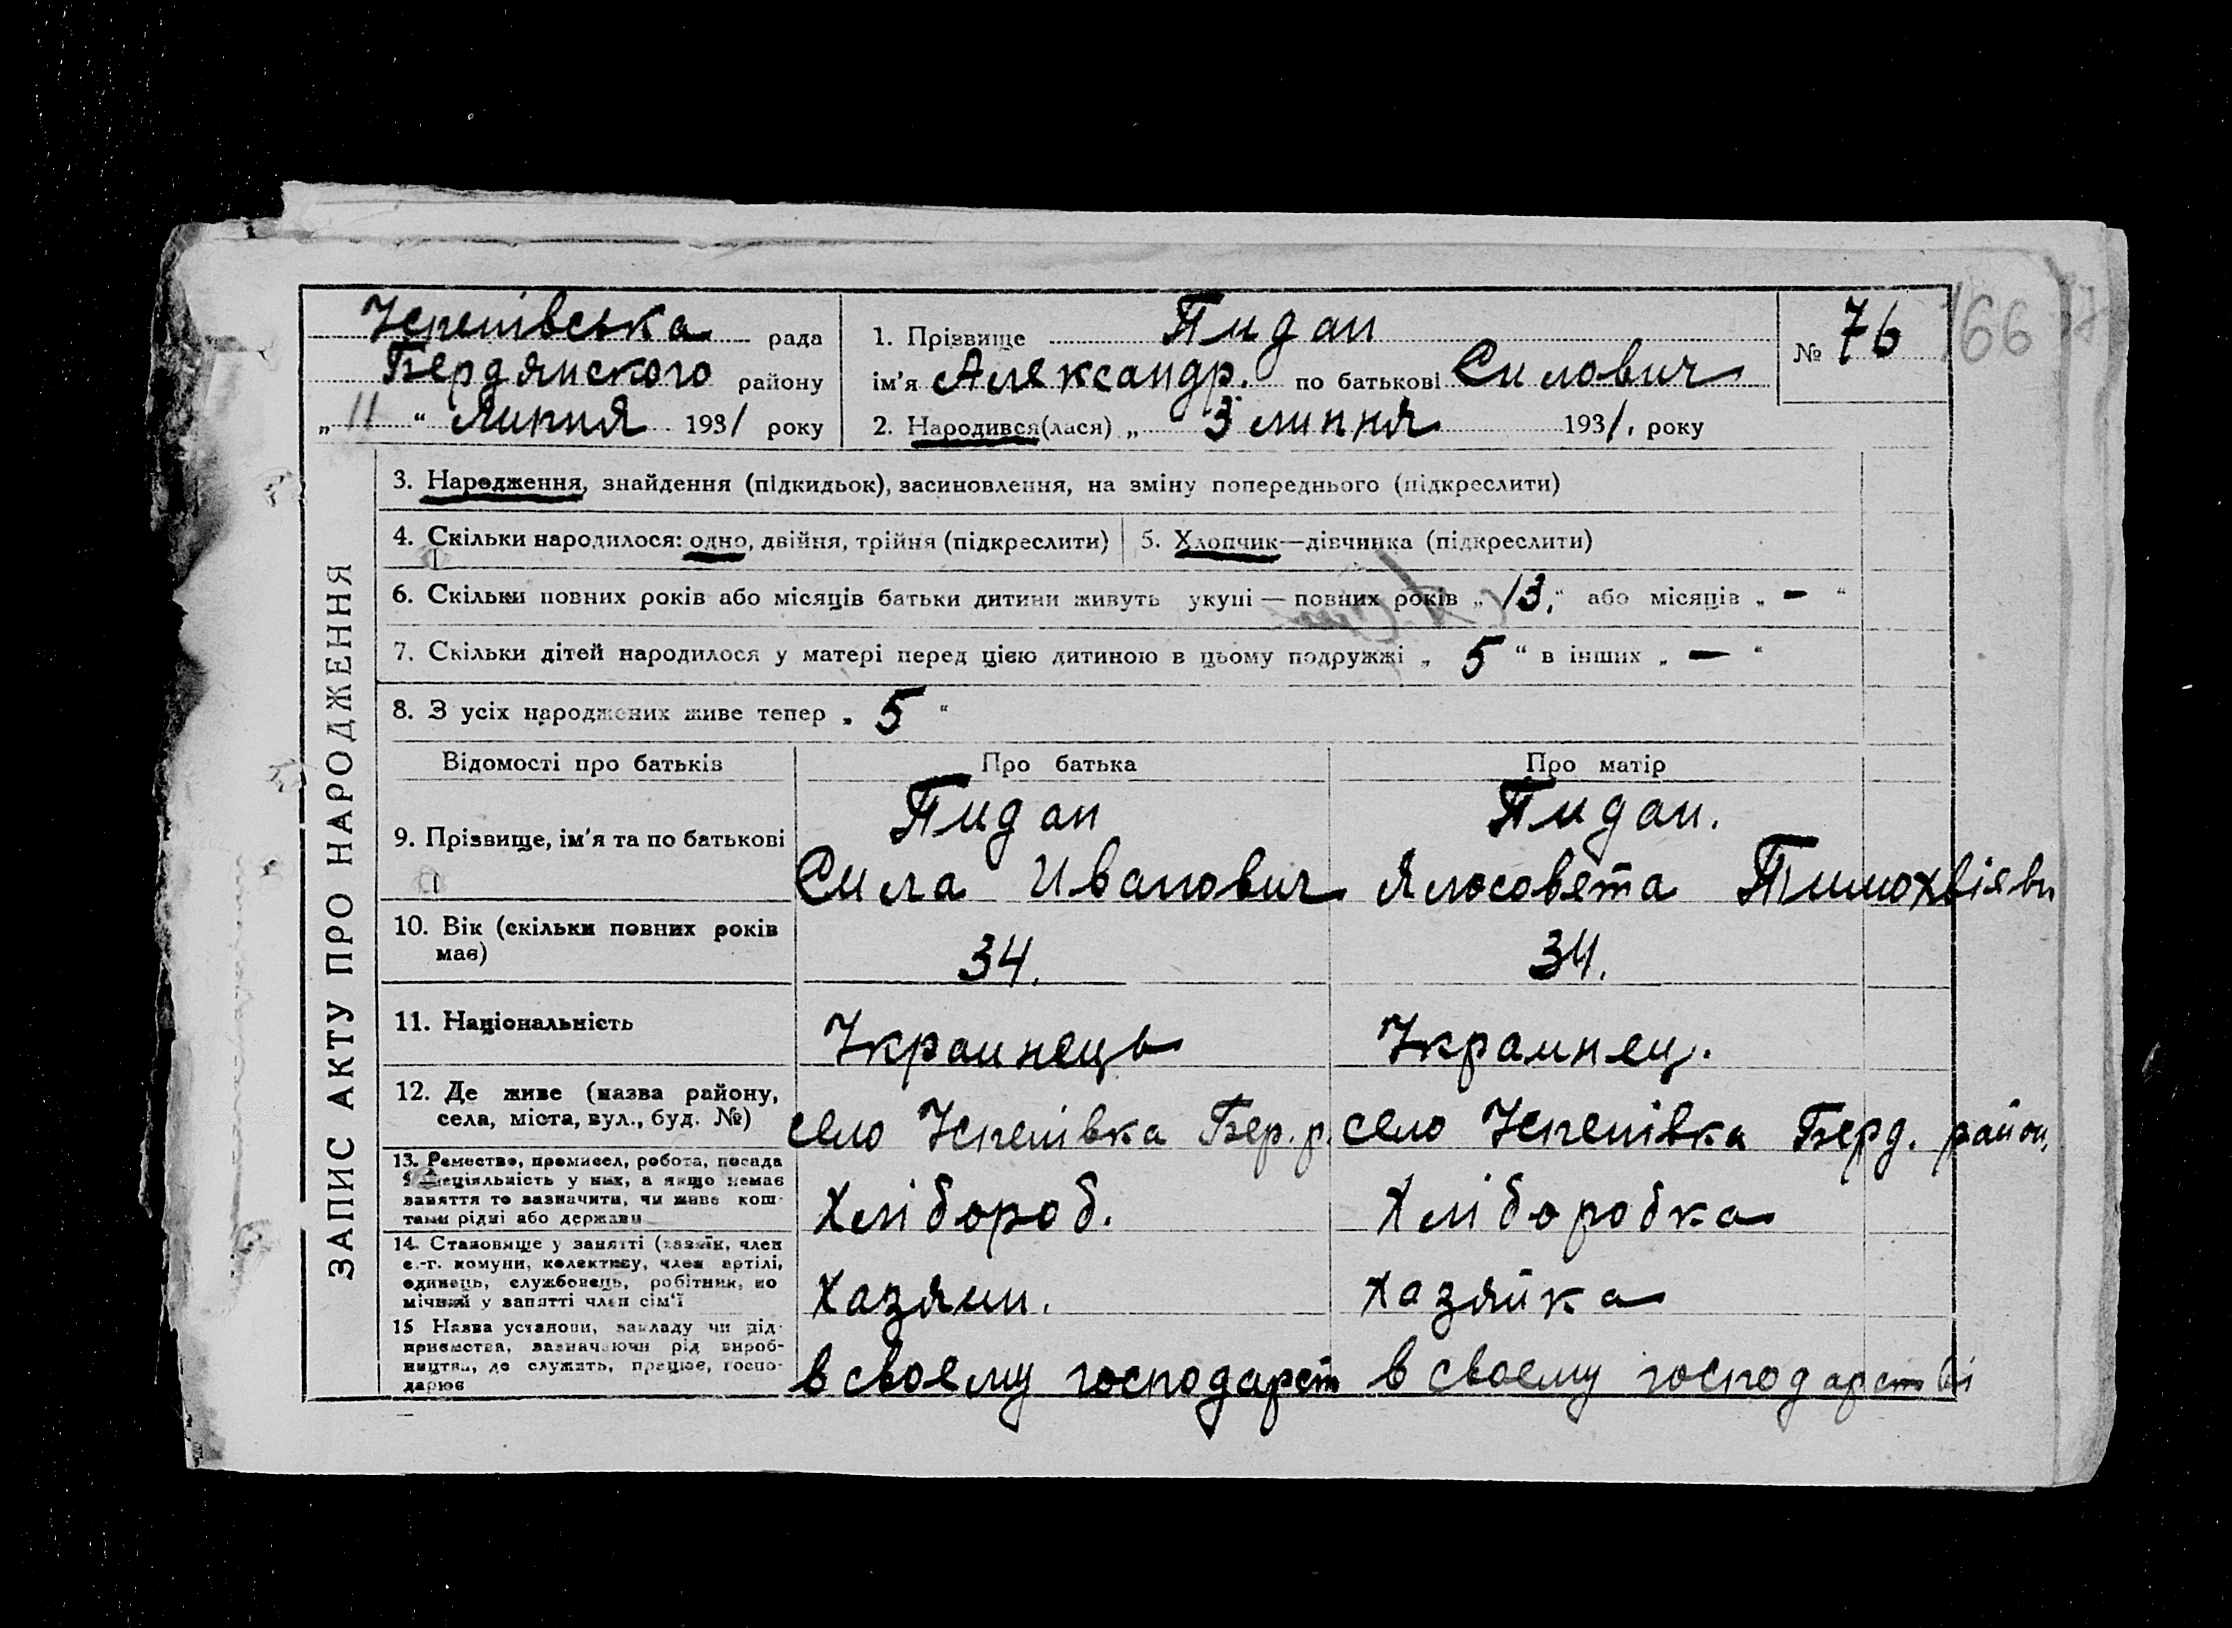 Успенівська рада
Бердянского району
„ 11 “ Липня 1931 року
1. Прізвище Пидан
ім'я Александр. по батькові Силович
2. Народився(лася) „ 3 липня 1931, року
№ 76
166
ЗАПИС АКТУ ПРО НАРОДЖЕННЯ
3. Народження, знайдення (підкидьок), засиновлення, на зміну попереднього (підкреслити)
4. Скільки народилося: одно, двійня, трійня (підкреслити)
5. Хлопчик—дівчинка (підкреслити)
6. Скільки повних років або місяців батьки дитини живуть укупі — повних років „ 13, “ або місяців „ - “
7. Скільки дітей народилося у матері перед цією дитиною в цьому подружжі „ 5 “ в інших „ — “
8. З усіх народжених живе тепер „ 5 “
Відомості про батьків
Про батька
Про матір
9. Прізвище, ім'я та по батькові
Пидан
Сила Иванович
Пидан.
Ялосовета Тимохвіявн
10. Вік (скільки повних років
має)
34.
34.
11. Національність
Украинець
Украинец.
12. Де живе (назва району,
села, міста, вул., буд. №)
село Успенівка Бер. р.
село Успенівка Берд. район,
13. Ремество, промисел, робота, посада
й спеціяльність у них, а якщо немає
заняття то зазначити, чи живе кош-
тами рідні або держави
Хлібороб.
Хліборобка
14. Становище у занятті (хазяїн, член
с.-г. комуни, колективу, член артілі,
одинець, службовець, робітник, по
мічний у занятті член сім'ї
Хазяин.
Хазяйка
15 Назва установи, закладу чи під-
приємства, зазначаючи рід вироб-
ництва, де служить, працює, госпо-
дарює
в своему господарст
в своему господарстві